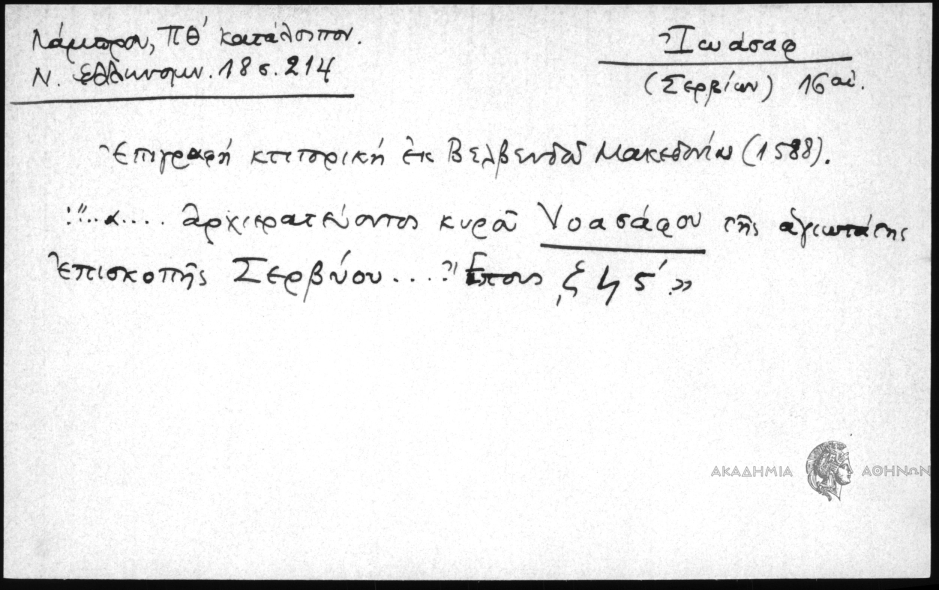 Λάμπρου, ΠΘ΄ κατάλοιπον.
Ν. Ἑλληνομν. 18 σ. 214
Ἰωάσαφ
(Σερβίων) 16 αἰ.
Ἐπιγραφὴ κτιτορικὴ ἐκ Βελβενδοῦ Μακεδονίας (1588).
ἀρχιερατεύοντος κυροῦ Υοασάφου τῆς ἁγιωτάτης
ἐπισκοπῆς Σερβύου.... Ἔτους ζ϶ϛ΄»
ΑΚΑΔΗΜΙΑ ΑΘΗΝΩΝ